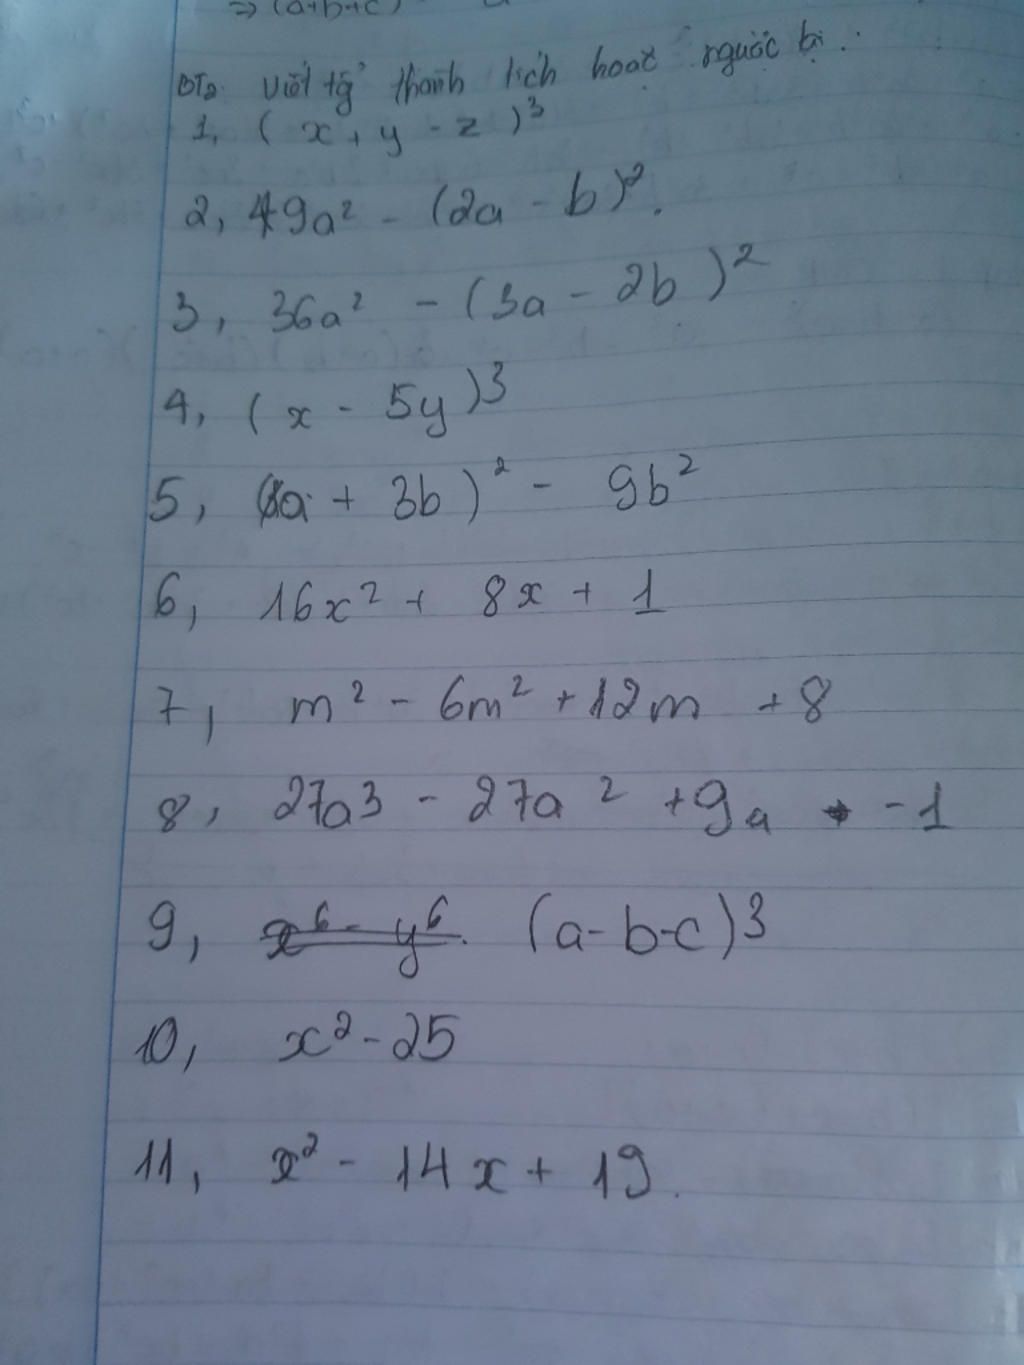 => (a+b+c)
BT2. Viết tổng thành tích hoặc ngược lại.
1, (x + y - z)³
2, 49a² - (2a - b)².
3, 36a² - (3a - 2b)²
4, (x - 5y)³
5, (a + 3b)² - 9b²
6, 16x² + 8x + 1
7, m² - 6m² + 12m + 8
8, 27a3 - 27a² + 9a - 1
9, x⁶ - y⁶. (a-b-c)3
10, x² - 25
11, x² - 14x + 19.